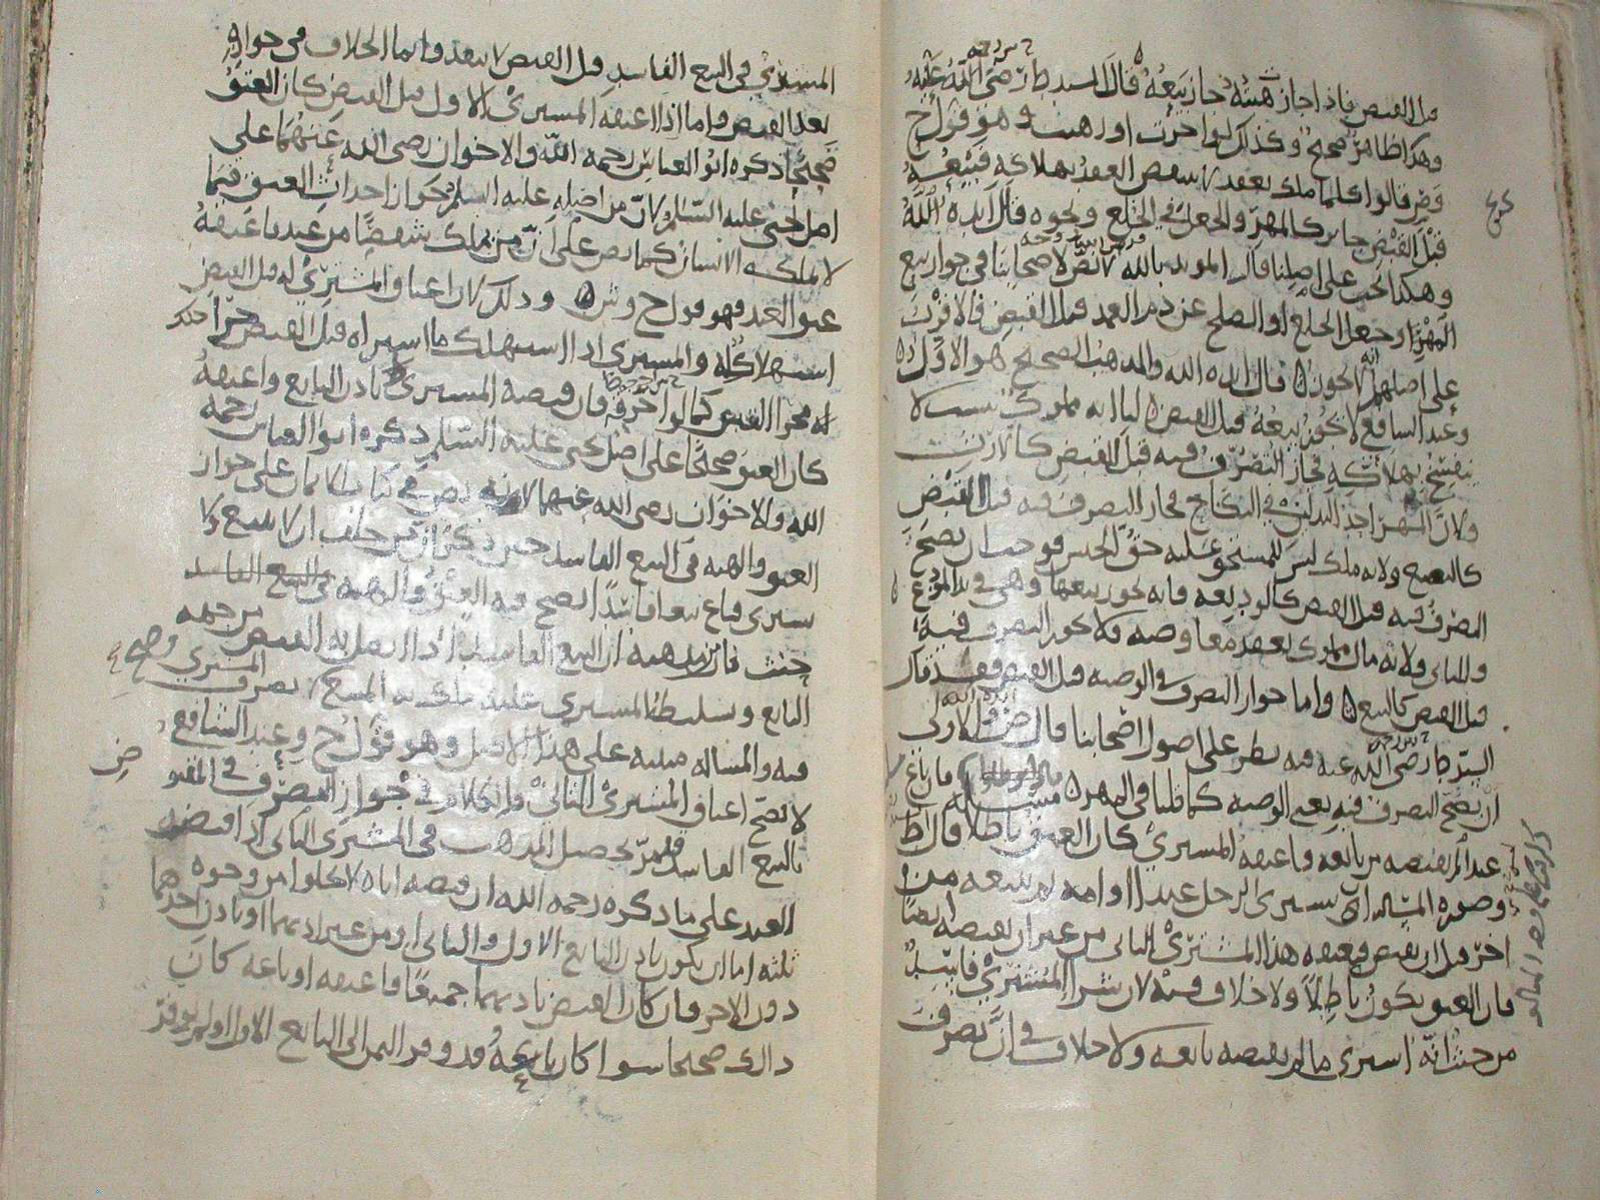 قبل القبض فاذا جاز هبته جاز بيعه قال السيد ط رضي الله عنه
وهذا ظاهر صحيح وكذلك لو اجرت او رهنت وهو قول ح
وض قالوا كلما ملك بعقد لا ينتقض العقد بهلاكه فبيعه
قبل القبض جايز كالمهر والجعل في الخلع ونحوه قال ايده الله
وهكذا يجب على اصلنا قال المويد بالله لا نص لاصحابنا في جواز بيع
المهر او جعل الخلع او الصلح عن دم العمد قبل القبض فالاقرب
على اصلهم انه لا يجوز قال ايده الله والمذهب الصحيح هو الاول
وعند الشافعي لا يجوز بيعه قبل القبض لنا انه مملوك بسبب لا
ينفسخ بهلاكه فجاز التصرف فيه قبل القبض كالارث
ولان المهر احد البدلين في النكاح فجاز التصرف فيه قبل القبض
كالبضع ولانه ملك ليس للمستحق عليه حق الحبس فوجب ان يصح
التصرف فيه قبل القبض كالوديعة فانه يجوز بيعها وهي في يد المودع
وللثاني ولانه مال مملوك بعقد معاوضه فلا يجوز التصرف فيه
قبل القبض كالبيع واما جواز التصرف في الوصيه قبل القبض فقد قال
السيد ط رضي الله عنه فيه نظر على اصول اصحابنا قال ض الاولى
ان يصح التصرف فيه يعني الوصيه كما قلنا في المهر مسالة فان باع
عبدا لم يقبضه من بايعه فاعتقه المشتري كان العتق باطلا قال ط
وصورة المسالة ان يشتري الرجل عبدا او امة ثم يبيعه من
اخر قبل ان يقبض فيعتقه هذا المشتري الثاني من غير ان يقبضه ايضا
فان العتق يكون باطلا ولا خلاف فيه لان شرا المشتري فاسد
من حيث انه اشترى ما لم يقبضه بايعه ولا خلاف في ان تصرف
المشتري في البيع الفاسد قبل القبض لا ينفذ وانما الخلاف في جوازه
بعد القبض واما اذا اعتقه المشتري الاول قبل القبض كان العتق
صحيحا ذكره ابو العباس رحمه الله والاخوان رضي الله عنهما على
اصل يحيى عليه السلام لان من اصله عليه السلم جواز احداث العتق فيما
لا يملكه الانسان كما نص على ان من يملك شقصا من عبد فاعتقه
عتق العبد فهو قول ح وش وذلك لان اعتاق المشتري له قبل القبض
استهلاك له والمشتري اذا استهلك ما اشتراه قبل القبض جرى ذلك
له مجرا القبض كما لو احرقه فان قبضه المشتري باذن البايع واعتقه
كان العتق صحيحا على اصل يحيى عليه السلم ذكره ابو العباس رحمه
الله والاخوان رضي الله عنهما لانه نص في كتاب الايمان على جواز
العتق والهبه في البيع الفاسد حين ذكر ان من حلف ان لا يبيع ولا
يشتري فباع بيعا فاسدا يصح فيه العتق والهبه في البيع الفاسد
حنث فان مذهبه ان البيع الفاسد اذا اتصل به القبض من جهه
البايع وتسليط المشتري عليه ملك به المبيع تصرف المشتري وصح
فيه والمسالة مبنيه على هذا الاصل وهو قول ح وعند الشافعي
لا يصح اعتاق المشتري الثاني والكلام في جواز التصرف في المقبوض
بالبيع الفاسد قد مر تحصيل المذهب في المشتري الثاني اذا قبضه
العبد على ما ذكره رحمه الله ان قبضه اياه لا يخلوا من وجوه
ثلثه اما ان يكون باذن البايع الاول والثاني او من غير اذنهما او باذن احدهما
دون الاخر فان كان القبض باذنهما جميعا فاعتقه او باعه كان
ذالك صحيحا سوا كان بايعه قد وفر الثمن الى البايع الاول او لم يوفر